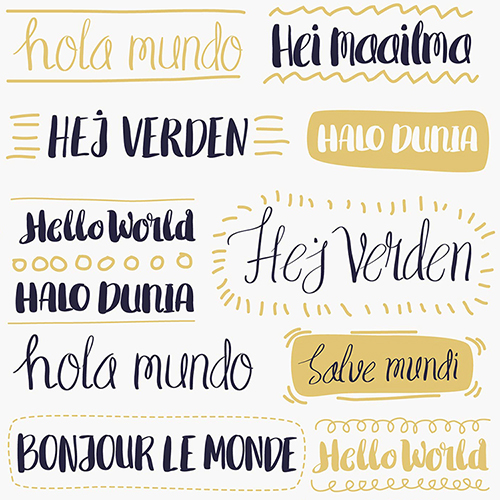 hola mundo
Hei Maailma
HEJ VERDEN
HALO DUNIA
Hello World
HALO DUNIA
Hej Verden
hola mundo
Salve mundi
BONJOUR LE MONDE
Hello World